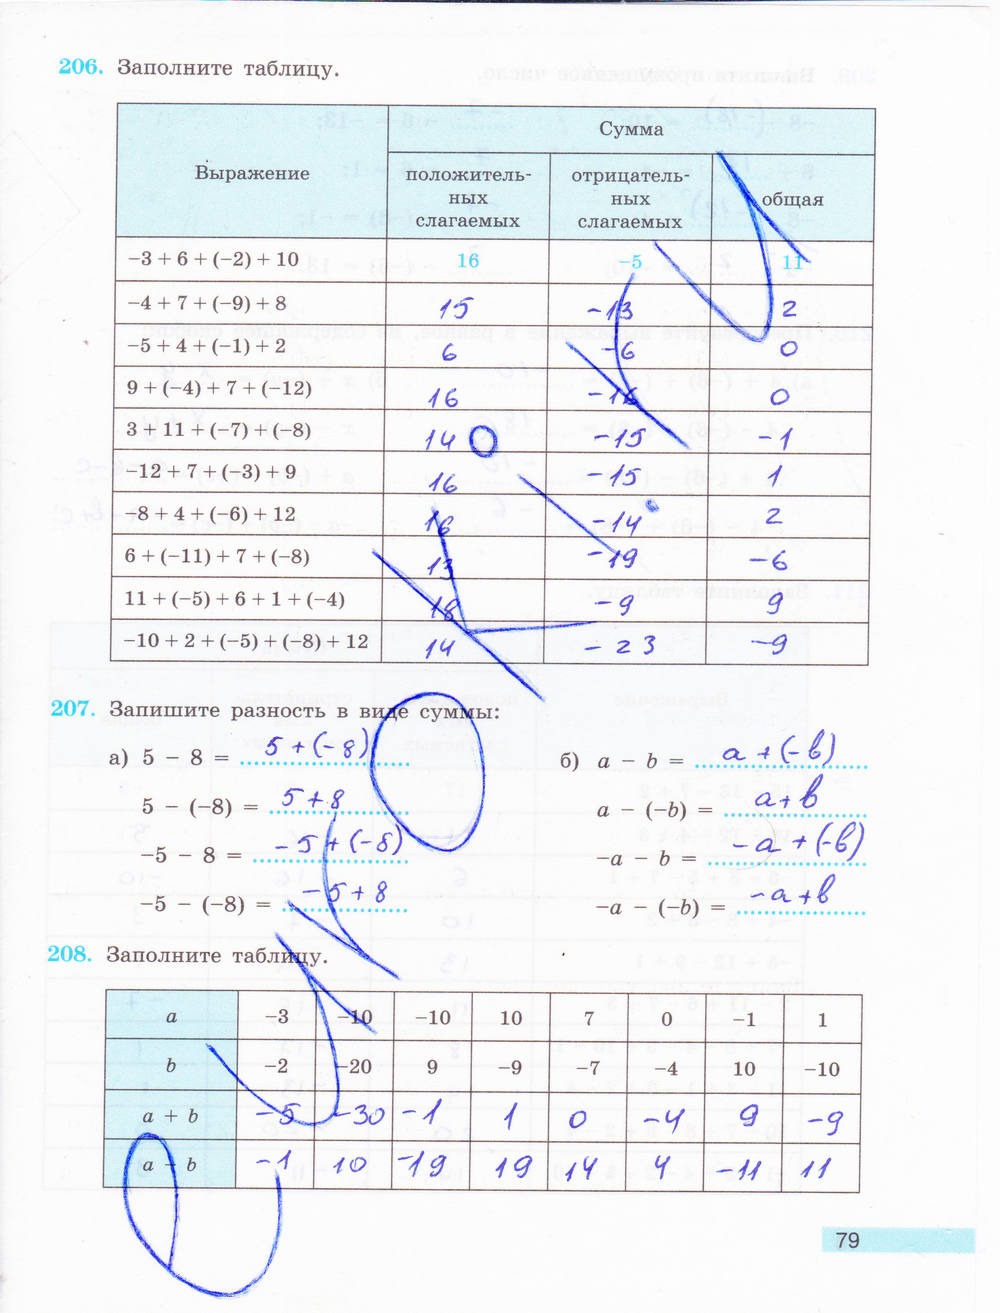 206. Заполните таблицу.
Выражение Сумма
положитель-ных слагаемых отрицатель-ных слагаемых общая
−3 + 6 + (−2) + 10 16 −5 11
−4 + 7 + (−9) + 8 15 −13 2
−5 + 4 + (−1) + 2 6 −6 0
9 + (−4) + 7 + (−12) 16 −16 0
3 + 11 + (−7) + (−8) 14 −15 −1
−12 + 7 + (−3) + 9 16 −15 1
−8 + 4 + (−6) + 12 16 −14 2
6 + (−11) + 7 + (−8) 13 −19 −6
11 + (−5) + 6 + 1 + (−4) 18 −9 9
−10 + 2 + (−5) + (−8) + 12 14 −23 −9
207. Запишите разность в виде суммы:
а) 5 − 8 = 5 + (−8)
5 − (−8) = 5 + 8
−5 − 8 = −5 + (−8)
−5 − (−8) = −5 + 8
б) a − b = a + (−b)
a − (−b) = a + b
−a − b = −a + (−b)
−a − (−b) = −a + b
208. Заполните таблицу.
a −3 −10 −10 10 7 0 −1 1
b −2 −20 9 −9 −7 −4 10 −10
a + b −5 −30 −1 1 0 −4 9 −9
a − b −1 10 −19 19 14 4 −11 11
79